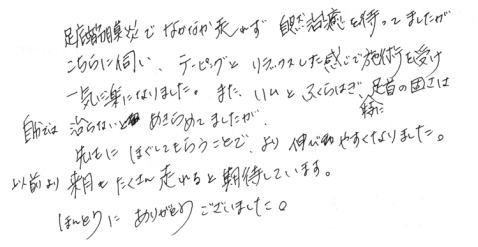 足底筋膜炎でなかなか走れず 自然治癒を待ってましたが
こちらに伺い、テーピングとリラックスした感じで施術を受け
一気に楽になりました。また、いムとふくらはぎ、特に足首の固さは
自分では治らないとあきらめてましたが、
先生にほぐしてもらうことで、より伸び動やすくなりました。
以前より来月もたくさん走れると期待しています。
ほんとうにありがとうございました。